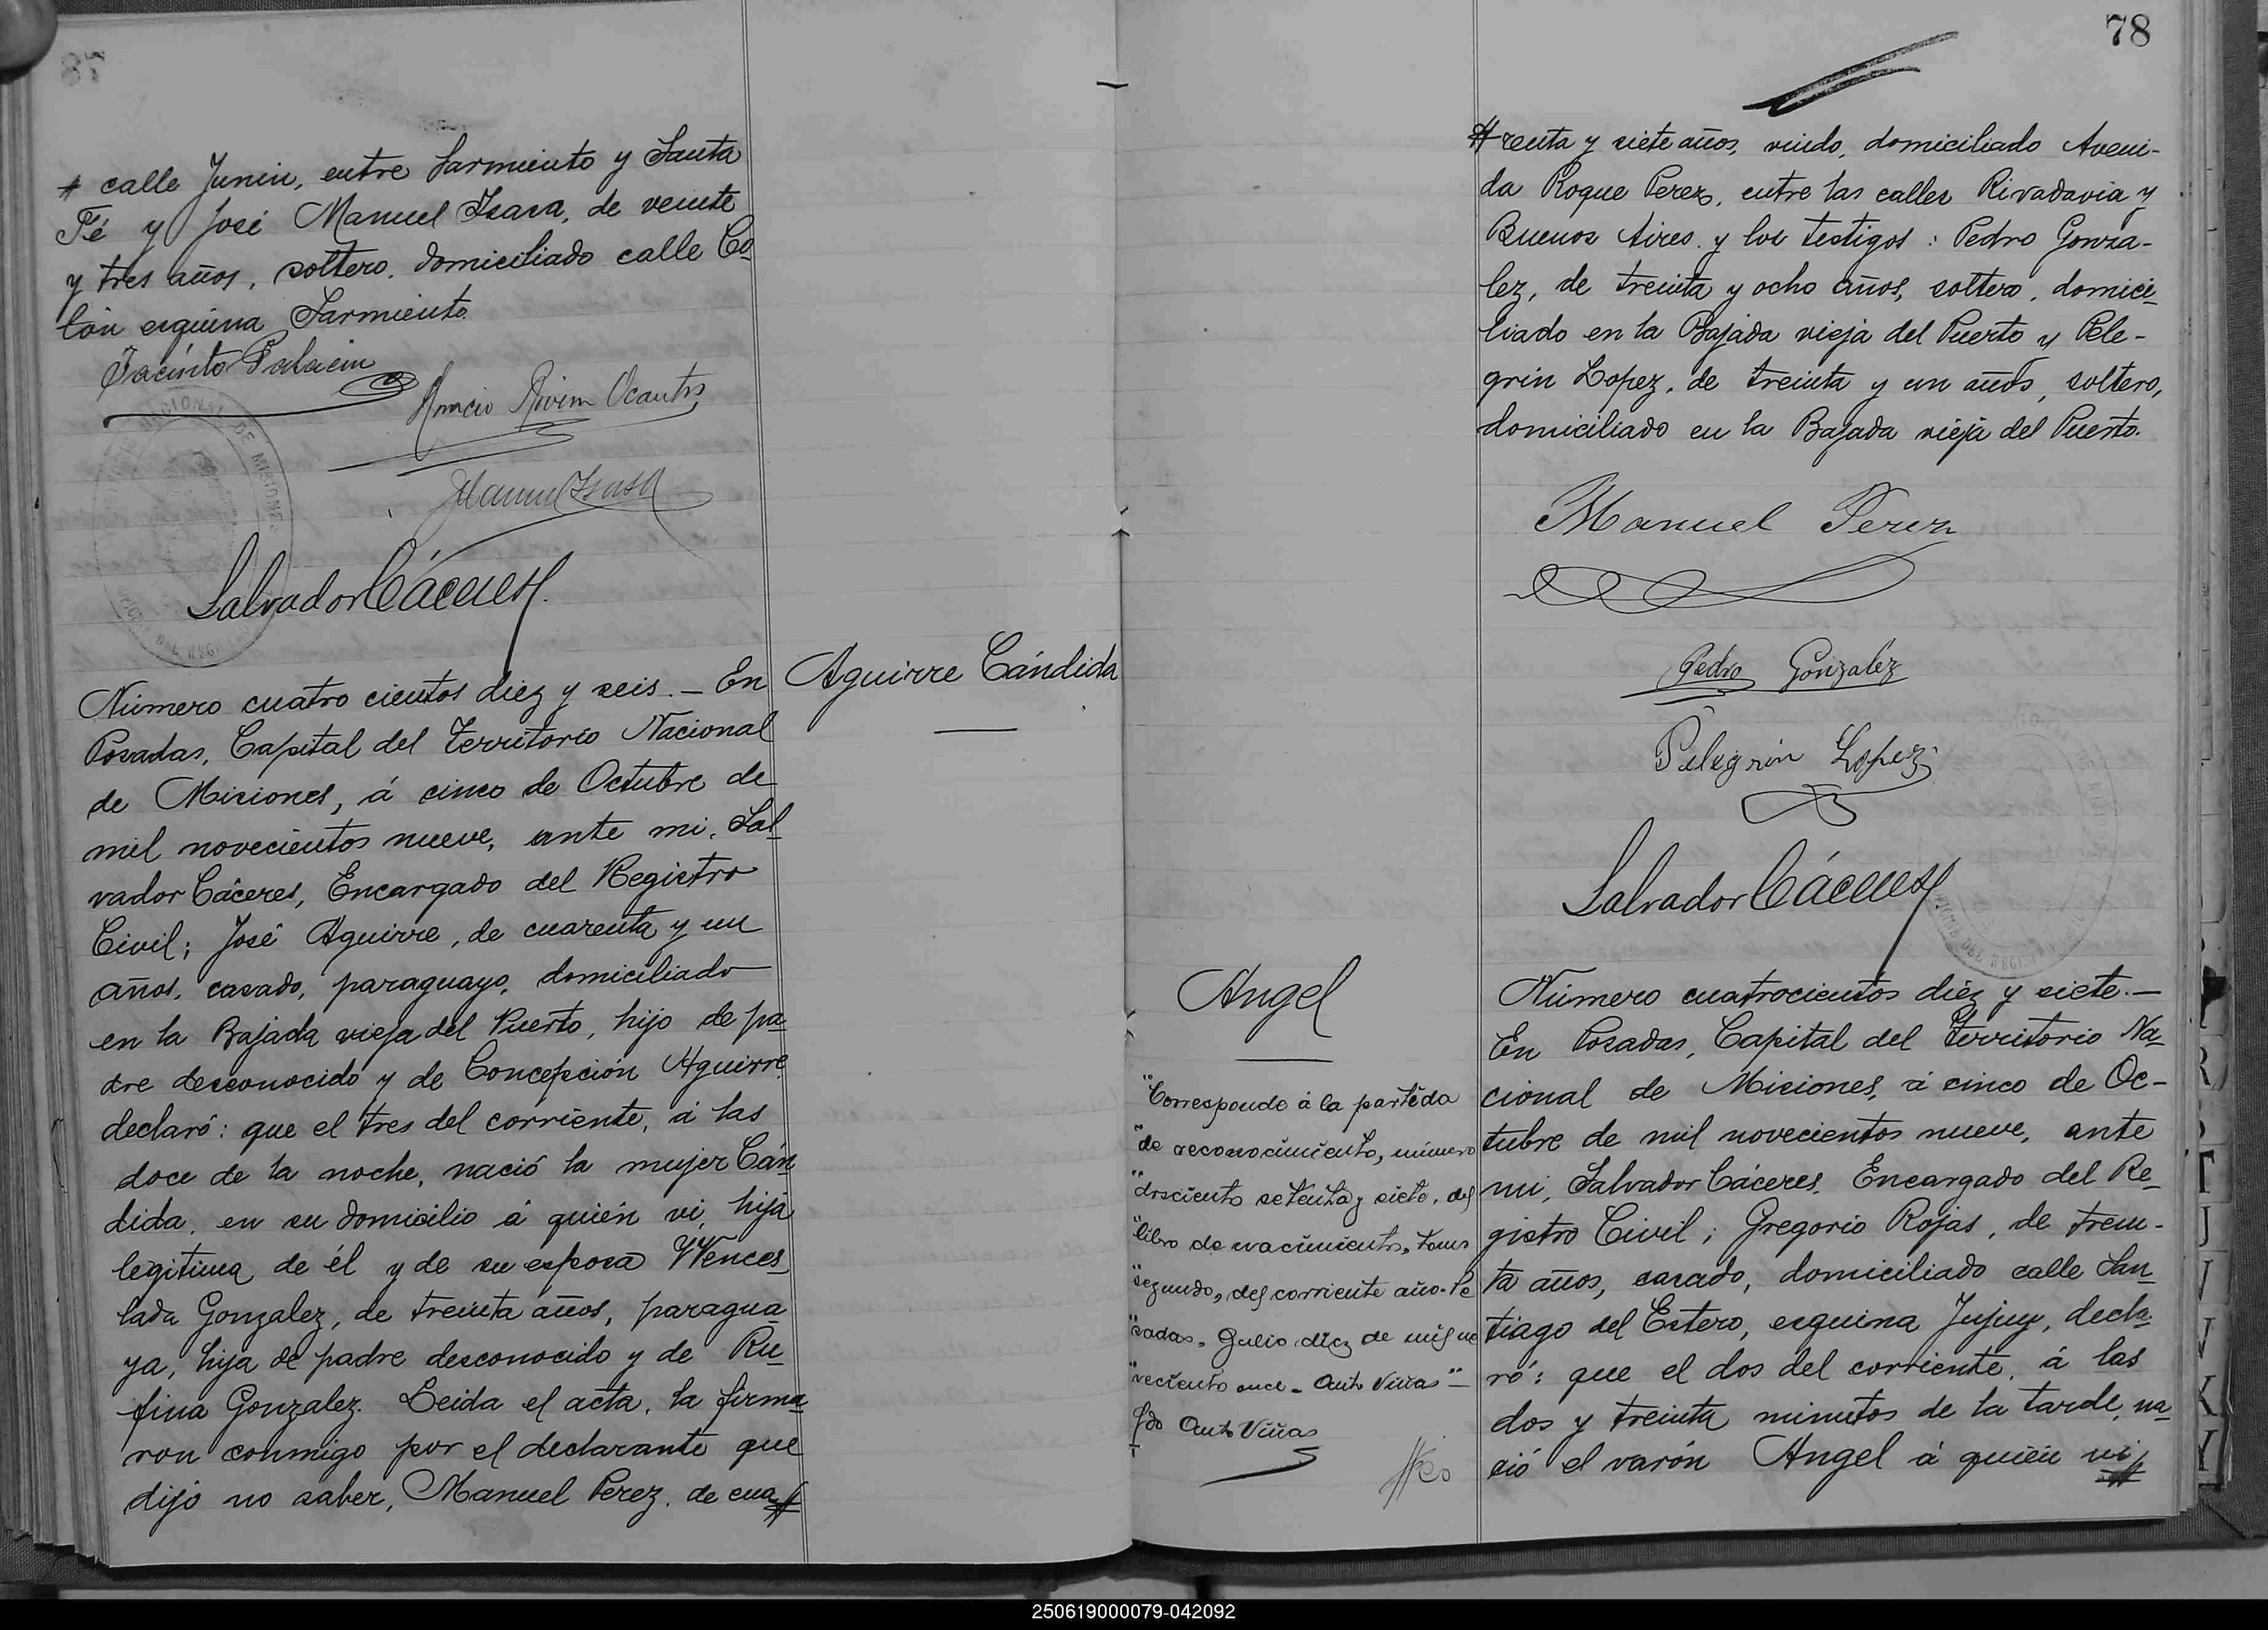 calle Junin, entre Sarmiento y Santa
Fé y José Manuel Isasa, de veinte
y tres años, soltero, domiciliado calle Co
lón esquina Sarmiento.
Jacinto Palacin
Ocantos
Manuel Isasa
Salvador Cáceres
Número cuatro cientos diez y seis. — En
Posadas, Capital del Territorio Nacional
de Misiones, á cinco de Octubre de
mil novecientos nueve, ante mi, Sal
vador Cáceres, Encargado del Registro
Civil; José Aguirre, de cuarenta y un
años, casado, paraguayo, domiciliado
en la Bajada vieja del Puerto, hijo de pa
dre desconocido y de Concepción Aguirre
declaró: que el tres del corriente, á las
doce de la noche, nació la mujer Cán
dida, en su domicilio á quién vi, hija
legitima de él y de su esposa Wences
lada Gonzalez, de treinta años, paragua
ya, hija de padre desconocido y de Ru
fina Gonzalez. Leida el acta, la firma
ron conmigo por el declarante que
dijo no saber, Manuel Perez, de cua
Aguirre Cándida
78
renta y siete años, viudo, domiciliado Aveni-
da Roque Perez, entre las calles Rivadavia y
Buenos Aires y los testigos: Pedro Gonza-
lez, de treinta y ocho años, soltero, domici
liado en la Bajada vieja del Puerto y Pele-
grin Lopez, de treinta y un años, soltero,
domiciliado en la Bajada vieja del Puerto.
Manuel Perez
Pedro Gonzalez
Pelegrin Lopez
Salvador Cáceres
Angel
"Corresponde á la partida
"de reconocimiento, número
"doscientos setenta y siete, del
"libro de nacimientos, tomo
"segundo, del corriente año. Po
"sadas, Julio diez de mil no
"vecientos once - Anto Viñas" —
fdo Anto Viñas
Número cuatrocientos diez y siete. —
En Posadas, Capital del Territorio Na
cional de Misiones, á cinco de Oc-
tubre de mil novecientos nueve, ante
mi, Salvador Cáceres, Encargado del Re-
gistro Civil; Gregorio Rojas, de trein-
ta años, casado, domiciliado calle San
tiago del Estero, esquina Jujuy, decla
ró: que el dos del corriente, á las
dos y treinta minutos de la tarde, na
ció el varón Angel á quién vi,
250619000079-042092